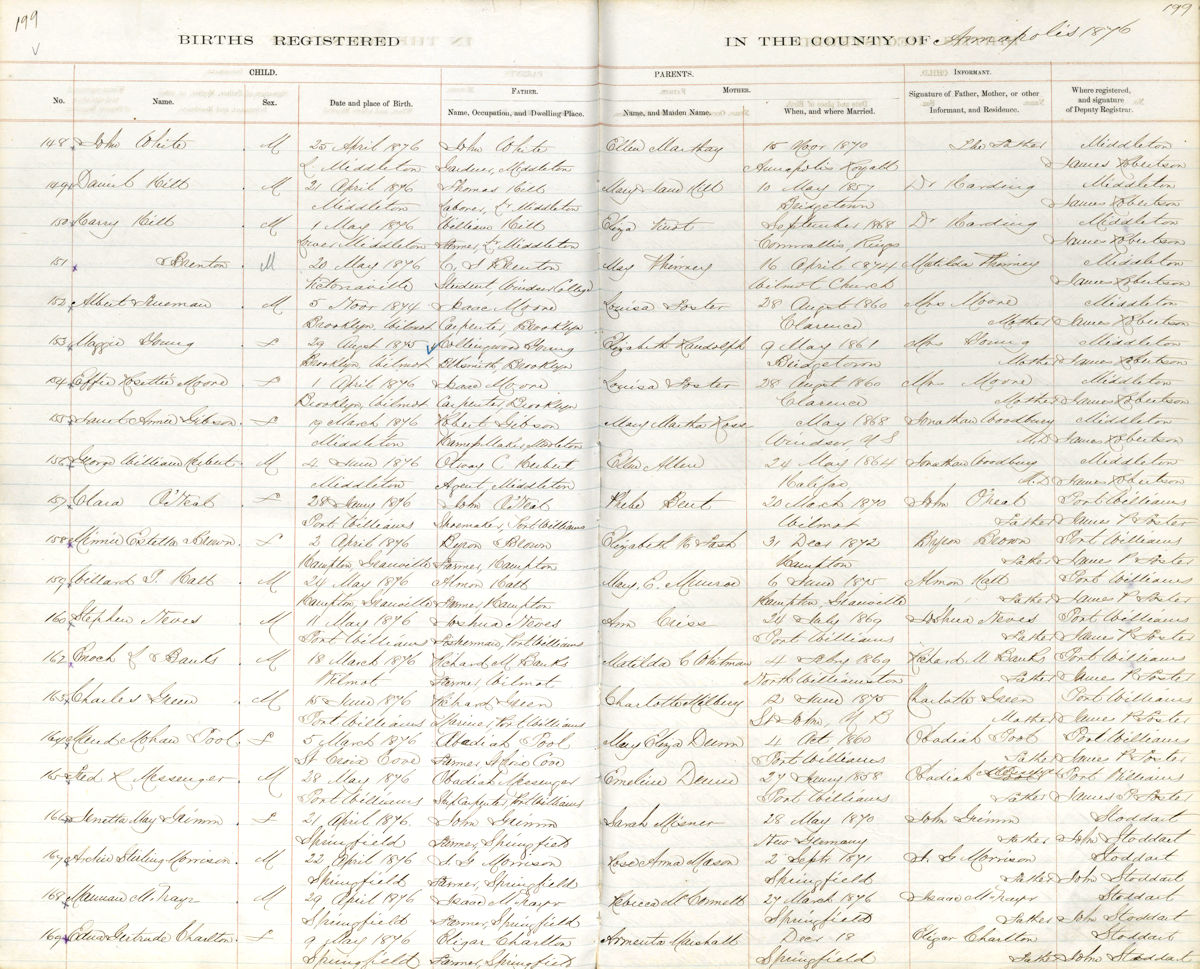 199
199
BIRTHS REGISTERED IN THE COUNTY OF Annapolis 1876
CHILD. PARENTS. INFORMANT.
No. Name. Sex. Date and place of Birth. FATHER. Name, Occupation, and Dwelling Place. MOTHER. Name, and Maiden Name. When, and where Married. Signature of Father, Mother, or other Informant, and Residence. Where registered, and signature of Deputy Registrar.
148 John White M 25 April 1876 John White Ellen 15 Novr 1870 The Father Middleton
L Middleton Gardner, Middleton Annapolis Royal James Robertson
149 Daniel Hilt M 21 April 1876 Thomas Hilt Mary Hilt 10 May 1857 Dr Harding Middleton
Middleton Laborer, Lr Middleton Bridgetown James Robertson
150 Harry Hilt M 1 May 1876 William Hilt Eliza September 1868 Dr Harding Middleton
Lower Middleton Farmer, Lr Middleton Cornwallis, Kings James Robertson
151 Brenton M 20 May 1876 C. S Brenton May Phinney 16 April 1874 Matilda Phinney Middleton
Victoriaville Student, Windsor College Wilmot Church James Robertson
152 Albert Freeman M 5 Novr 1874 Isaac Moore Louisa Foster 28 August 1860 Mrs Moore Middleton
Brooklyn, Wilmot Carpenter, Brooklyn Clarence Mother James Robertson
153 Maggie Young F 29 August 1875 Collingwood Young Elizabeth Randolph 9 May 1861 Mrs Young Middleton
Brooklyn Wilmot Blksmith, Brooklyn Bridgetown Mother James Robertson
154 Effie Rosettie Moore F 1 April 1876 Isaac Moore Louisa Foster 28 August 1860 Mrs Moore Middleton
Brooklyn, Wilmot Carpenter, Brooklyn Clarence Mother James Robertson
155 Annie Gibson F 19 March 1876 Robert Gibson Mary Martha Ross May 1868 Jonathan Woodbury Middleton
Middleton Harness Maker, Middleton Windsor N S M.D James Robertson
156 George William Herbert M 4 June 1876 Otway C Herbert Ellen Allen 24 May 1864 Jonathan Woodbury Middleton
Middleton Agent Middleton Halifax M.D James Robertson
157 Clara O'Neal F 28 Jany 1876 John O'Neal Phebe Bent 20 March 1870 John O'Neal Port Williams
Port Williams Shoemaker, Port Williams Wilmot Father James P. Foster
158 Minnie Estella Brown F 2 April 1876 Byron Brown Elizabeth H Fash 31 Decr 1872 Byron Brown Port Williams
Hampton, Granville Farmer, Hampton Hampton Father James P. Foster
159 Willard T. Hall M 24 May 1876 Almon Hall Mary. E. Munroe 6 June 1875 Almon Hall Port Williams
Hampton, Granville Farmer Hampton Hampton, Granville Father James P. Foster
160 Stephen Neves M 11 May 1876 Joshua Neves Ann 24 July 1869 Joshua Neves Port Williams
Port Williams Fisherman, Port Williams Port Williams Father James P. Foster
162 Enoch Banks M 18 March 1876 Richard M Banks Matilda C Whitman 4 Feby 1869 Richard M Banks Port Williams
Wilmot Farmer, Wilmot North Williamston Father James P. Foster
163 Charles Green M 15 June 1876 Richard Green Charlotte Milbury 12 June 1875 Charlotte Green Port Williams
Port Williams Port Williams St John, N B Mother James P. Foster
164 Pool F 5 March 1876 Obadiah Pool Mary Eliza Dunn 4 Oct 1860 Obadiah Pool Port Williams
St Croix Cove Farmer, St Croix Cove Port Williams Father James P. Foster
165 Fred R Messenger M 28 May 1876 Obadiah Messenger Emeline Dunn 27 Jany 1858 Obadiah Messenger Port Williams
Port Williams Ship Carpenter, Port Williams Port Williams Father James P. Foster
166 Jenetta May Grimm F 21 April 1876 John Grimm Sarah Misner 28 May 1870 John Grimm Stoddart
Springfield Farmer, Springfield New Germany Father John Stoddart
167 Archie Sterling Morrison M 22 April 1876 J. G Morrison Rose Anna Mason 2 Sept 1871 J. G Morrison Stoddart
Springfield Farmer, Springfield Springfield Father John Stoddart
168 McNayr M 29 April 1876 Isaac McNayr Rebecca McConnell 27 March 1876 Isaac McNayr Stoddart
Springfield Farmer, Springfield Springfield Father John Stoddart
169 Gertrude Charlton F 9 May 1876 Eligar Charlton Armenta Marshall Decr 18 Eligar Charlton Stoddart
Springfield Farmer, Springfield Springfield Father John Stoddart